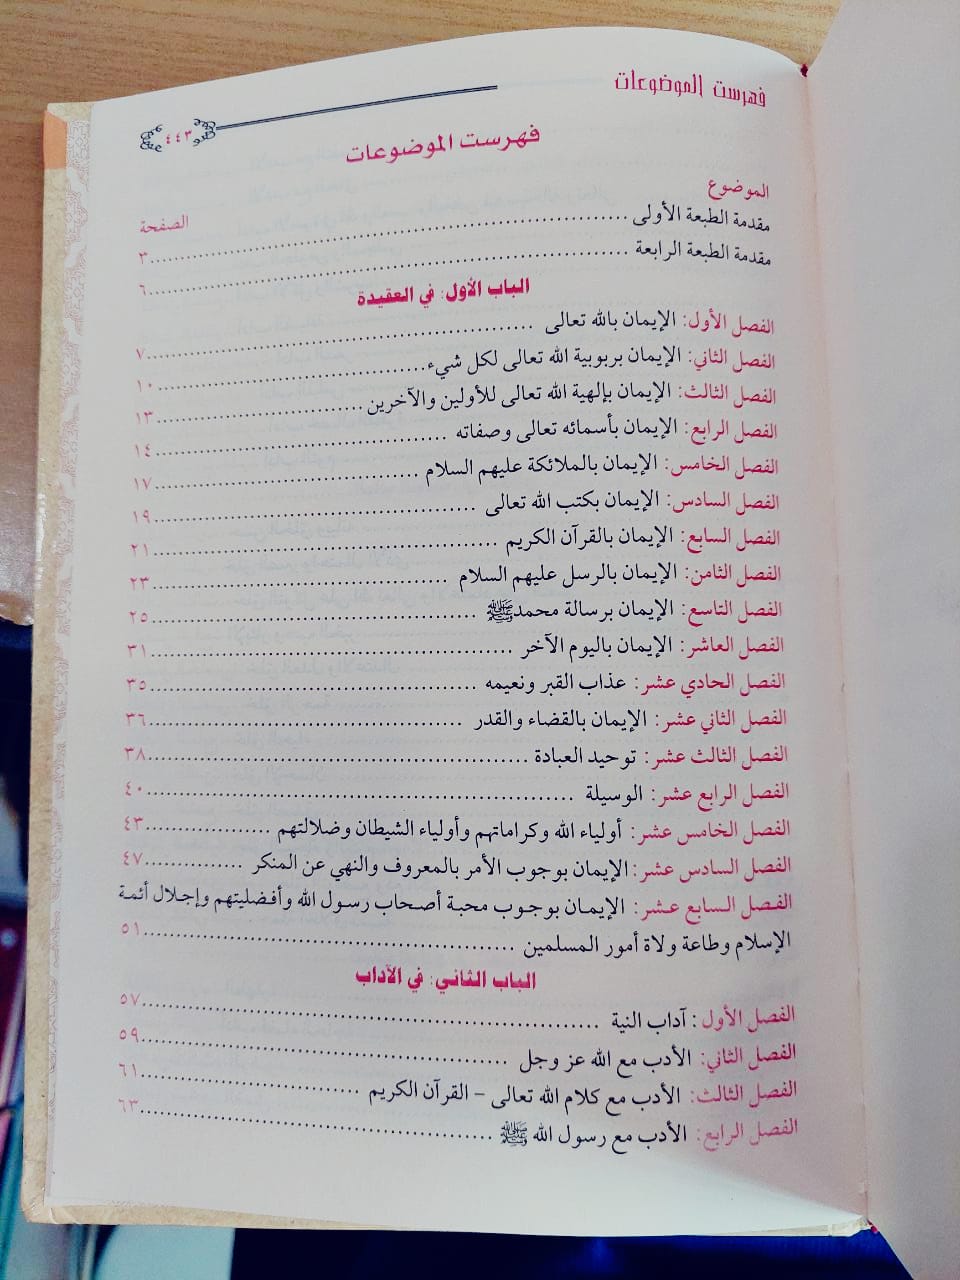 فهرست الموضوعات
٤٤٣
فهرست الموضوعات
الموضوع الصفحة
مقدمة الطبعة الأولى ٣
مقدمة الطبعة الرابعة ٦
الباب الأول: في العقيدة
الفصل الأول: الإيمان بالله تعالى ٧
الفصل الثاني: الإيمان بربوبية الله تعالى لكل شيء ١٠
الفصل الثالث: الإيمان بإلهية الله تعالى للأولين والآخرين ١٣
الفصل الرابع: الإيمان بأسمائه تعالى وصفاته ١٤
الفصل الخامس: الإيمان بالملائكة عليهم السلام ١٧
الفصل السادس: الإيمان بكتب الله تعالى ١٩
الفصل السابع: الإيمان بالقرآن الكريم ٢١
الفصل الثامن: الإيمان بالرسل عليهم السلام ٢٣
الفصل التاسع: الإيمان برسالة محمد ﷺ ٢٥
الفصل العاشر: الإيمان باليوم الآخر ٣١
الفصل الحادي عشر: عذاب القبر ونعيمه ٣٥
الفصل الثاني عشر: الإيمان بالقضاء والقدر ٣٦
الفصل الثالث عشر: توحيد العبادة ٣٨
الفصل الرابع عشر: الوسيلة ٤٠
الفصل الخامس عشر: أولياء الله وكراماتهم وأولياء الشيطان وضلالتهم ٤٣
الفصل السادس عشر: الإيمان بوجوب الأمر بالمعروف والنهي عن المنكر ٤٧
الفصل السابع عشر: الإيمان بوجوب محبة أصحاب رسول الله وأفضليتهم وإجلال أئمة
الإسلام وطاعة ولاة أمور المسلمين ٥١
الباب الثاني: في الآداب
الفصل الأول: آداب النية ٥٧
الفصل الثاني: الأدب مع الله عز وجل ٥٩
الفصل الثالث: الأدب مع كلام الله تعالى – القرآن الكريم ٦١
الفصل الرابع: الأدب مع رسول الله ﷺ ٦٣